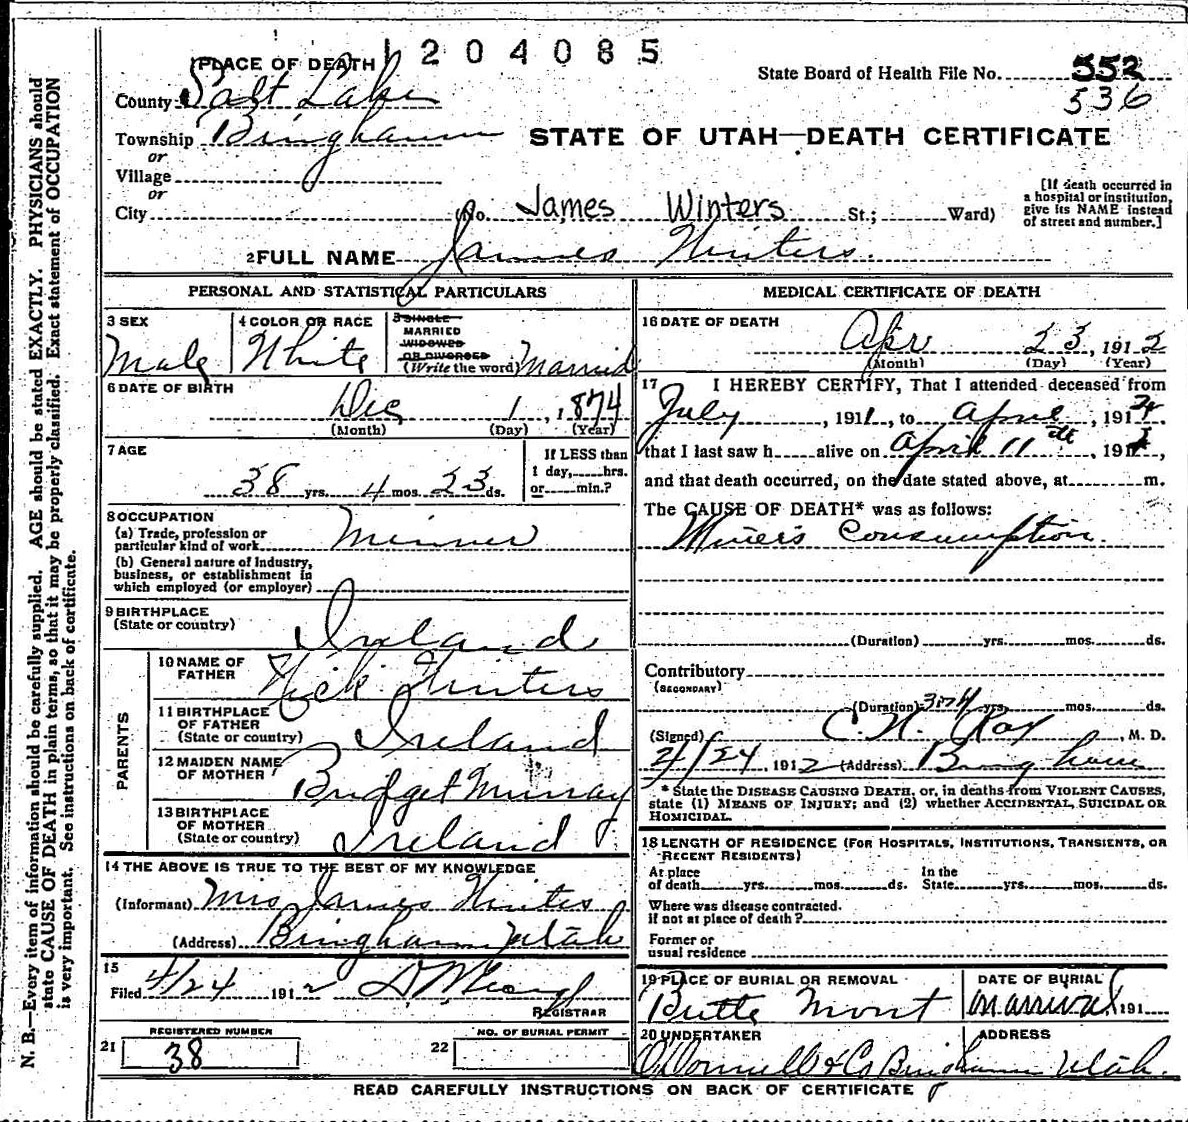 1 PLACE OF DEATH
204085
State Board of Health File No. 552
536
County Salt Lake
Township Bingham
STATE OF UTAH—DEATH CERTIFICATE
or
Village
or
City
No. James Winters St.; Ward)
[If death occurred in a hospital or institution, give its NAME instead of street and number.]
2 FULL NAME James Winters.
PERSONAL AND STATISTICAL PARTICULARS
3 SEX
Male
4 COLOR OR RACE
White
5 SINGLE
MARRIED
WIDOWED
OR DIVORCED
(Write the word) Married
6 DATE OF BIRTH
Dec 1, 1874
(Month) (Day) (Year)
7 AGE
38 yrs. 4 mos. 23 ds.
If LESS than
1 day, hrs.
or min.?
8 OCCUPATION
(a) Trade, profession or
particular kind of work Minner
(b) General nature of Industry,
business, or establishment in
which employed (or employer)
9 BIRTHPLACE
(State or country) Ireland
PARENTS
10 NAME OF
FATHER Nick Winters
11 BIRTHPLACE
OF FATHER
(State or country) Ireland
12 MAIDEN NAME
OF MOTHER Bridget Murray
13 BIRTHPLACE
OF MOTHER
(State or country) Ireland
14 THE ABOVE IS TRUE TO THE BEST OF MY KNOWLEDGE
(Informant) Mrs James Winters
(Address) Bingham Utah
15
Filed 4/24 1912
REGISTRAR
REGISTERED NUMBER
21 38
NO. OF BURIAL PERMIT
22
MEDICAL CERTIFICATE OF DEATH
16 DATE OF DEATH
Apr 23, 1912
(Month) (Day) (Year)
17 I HEREBY CERTIFY, That I attended deceased from
July, 1911, to April, 191
that I last saw h alive on April 11th, 191,
and that death occurred, on the date stated above, at m.
The CAUSE OF DEATH* was as follows:
Miner's Consumption.
(Duration) yrs. mos. ds.
Contributory
(SECONDARY)
(Duration) 3 or 4 yrs. mos. ds.
(Signed) C. N. Ray, M. D.
4/24 1912 (Address) Bingham
* State the DISEASE CAUSING DEATH, or, in deaths from VIOLENT CAUSES,
state (1) MEANS OF INJURY; and (2) whether ACCIDENTAL, SUICIDAL OR
HOMICIDAL.
18 LENGTH OF RESIDENCE (FOR HOSPITALS, INSTITUTIONS, TRANSIENTS, OR
RECENT RESIDENTS)
At place
of death yrs. mos. ds.
In the
State yrs. mos. ds.
Where was disease contracted.
if not at place of death?
Former or
usual residence
19 PLACE OF BURIAL OR REMOVAL
Butte Mont
DATE OF BURIAL
191
20 UNDERTAKER
O'Donnell & Co
ADDRESS
Bingham Utah.
READ CAREFULLY INSTRUCTIONS ON BACK OF CERTIFICATE
N. B.—Every item of information should be carefully supplied. AGE should be stated EXACTLY. PHYSICIANS should
state CAUSE OF DEATH in plain terms, so that it may be properly classified. Exact statement of OCCUPATION
is very important. See instructions on back of certificate.